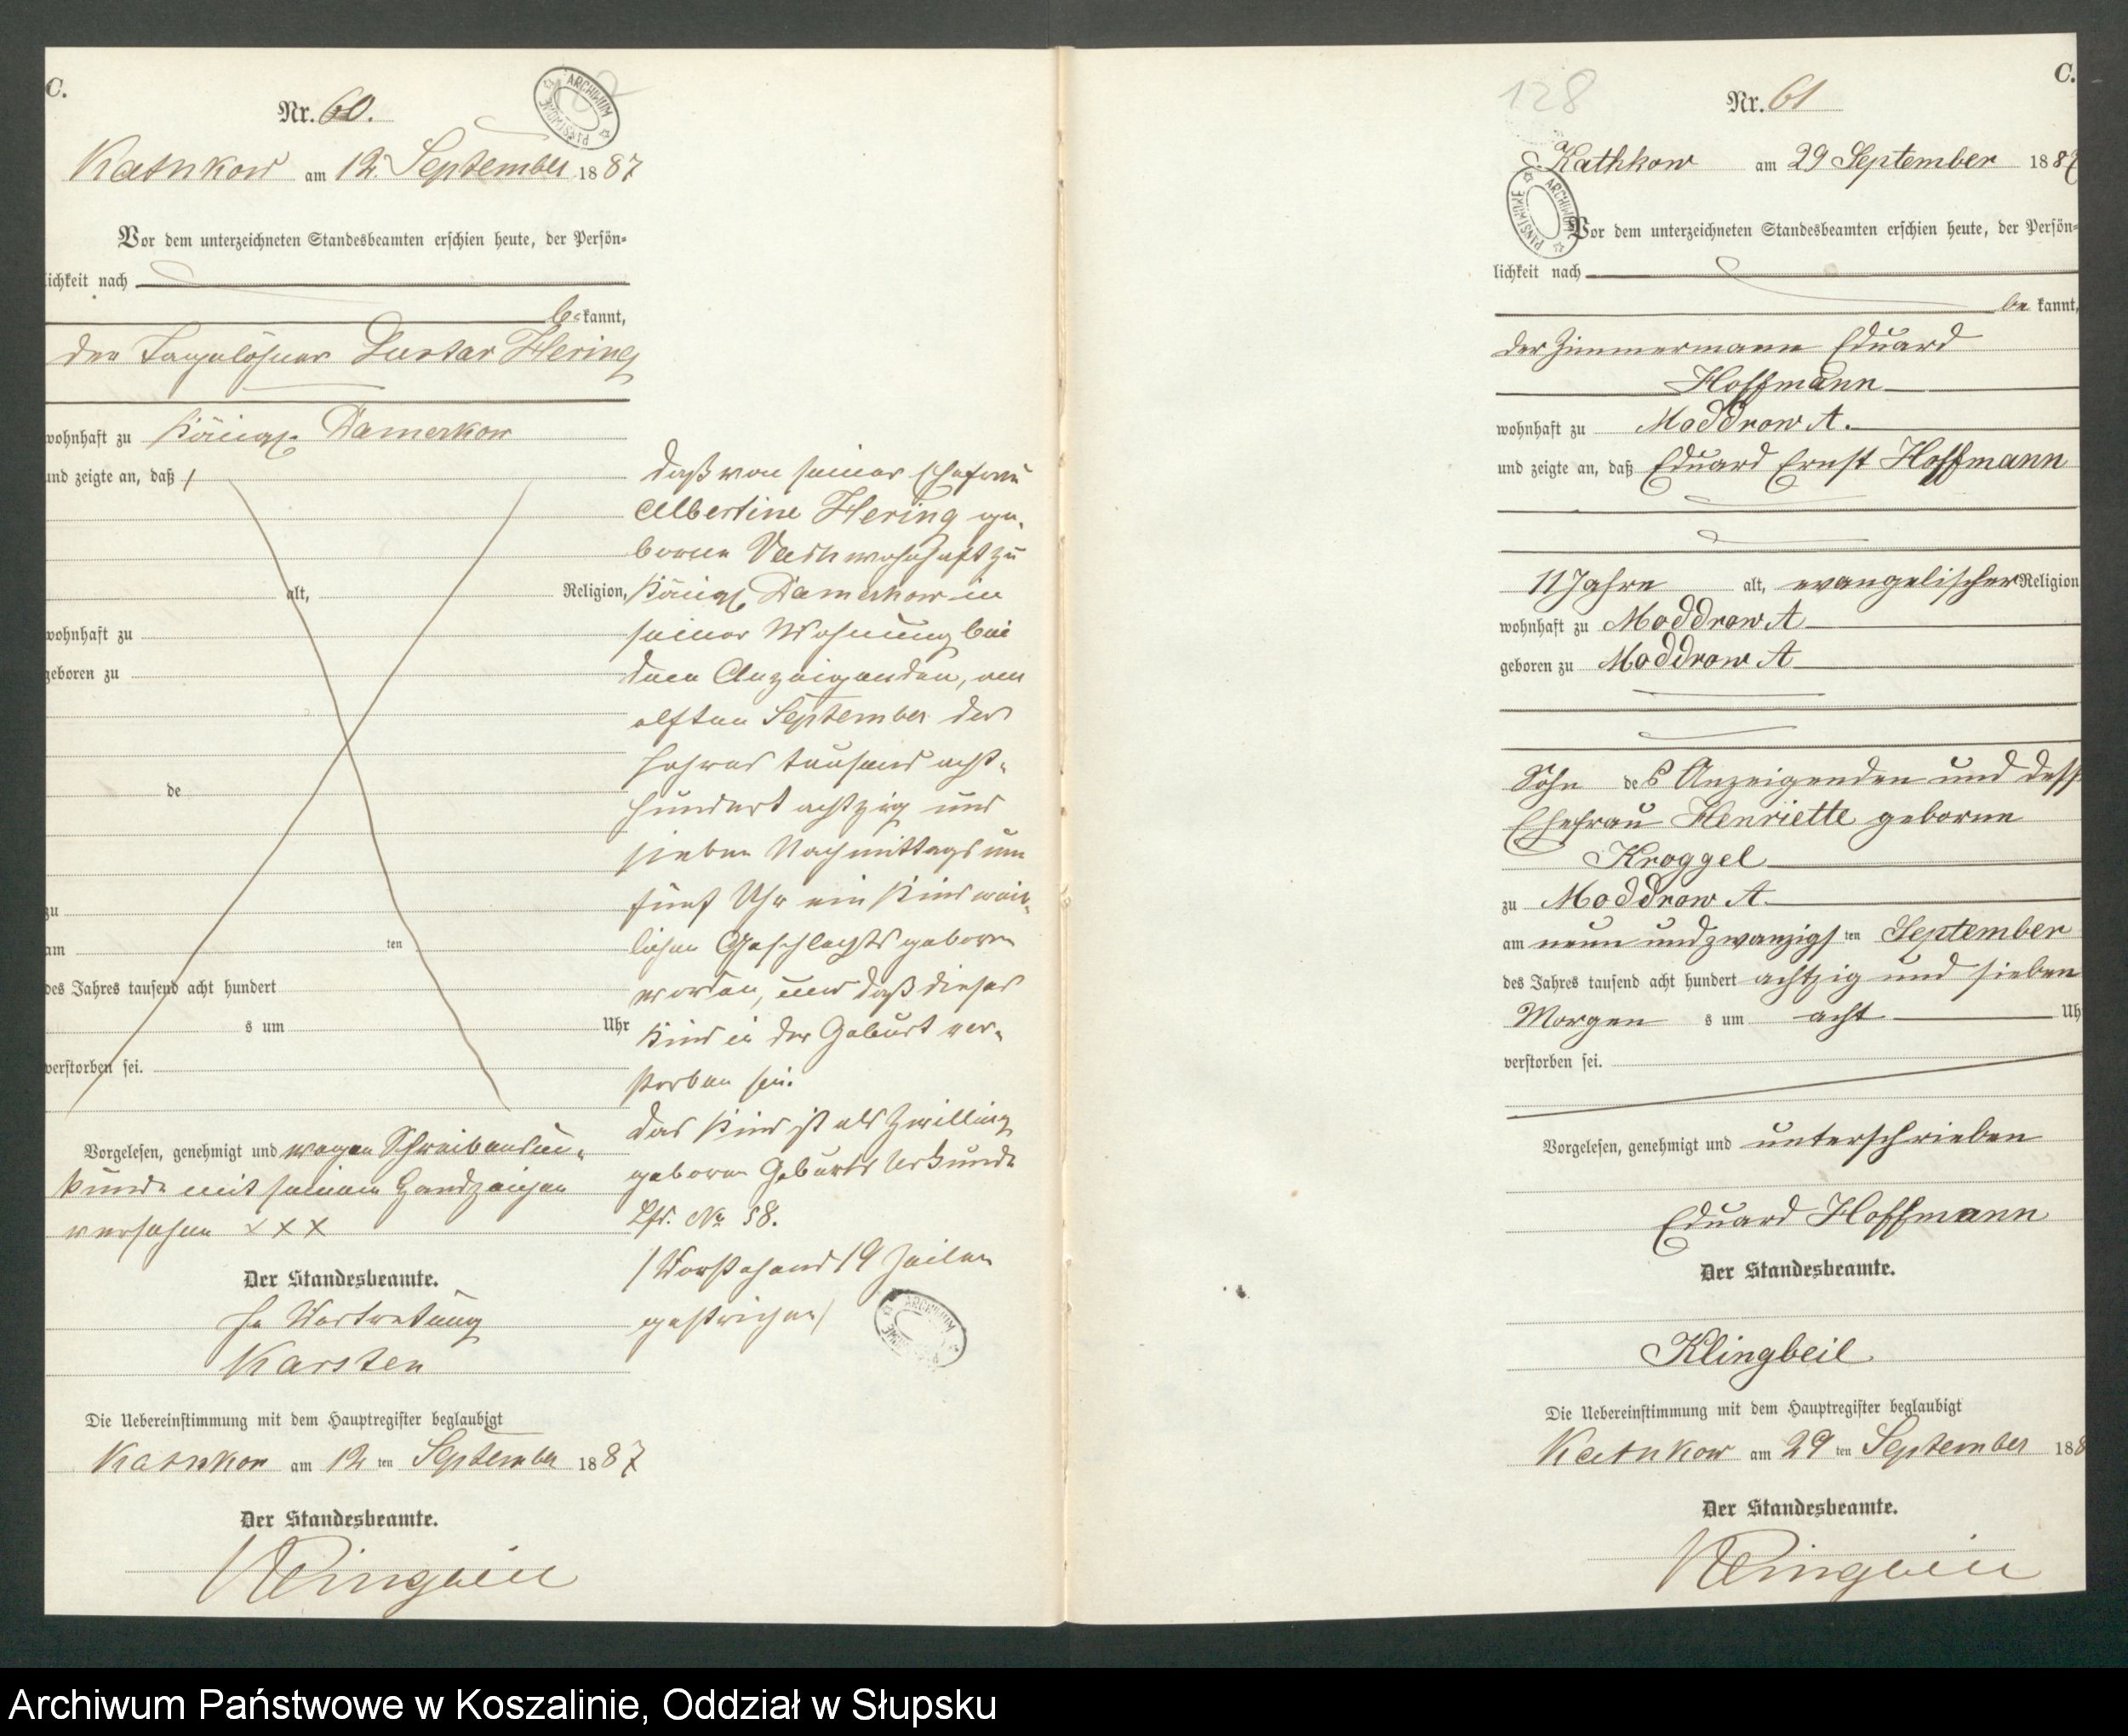 C.
Nr. 60.
ARCHIWUM PAŃSTWOWE
Kathkow am 12. September 1887
Vor dem unterzeichneten Standesbeamten erschien heute, der Persön-
lichkeit nach
be kannt,
der Tagelöhner Gustav Hering
wohnhaft zu Königl. Damerkow
und zeigte an, daß /
alt, Religion,
wohnhaft zu
geboren zu
de
zu
am ten
des Jahres tausend acht hundert
s um Uhr
verstorben sei.
daß von seiner Ehefrau
Albertine Hering ge-
borene wohnhaft zu
Königl. Damerkow in
seiner Wohnung bei
dem Anzeigenden, am
elften September des
Jahres tausend acht-
hundert achtzig und
sieben Nachmittags um
fünf Uhr ein Kind weib-
lichen Geschlechts geboren
worden, und daß dieses
Kind in der Geburt ver-
storben sei.
Das Kind ist als Zwilling
geboren Geburts Urkunde
Lfd. No 58.
/Vorstehend 19 Zeilen
gestrichen/
ARCHIWUM
Vorgelesen, genehmigt und wegen Schreibensun-
kunde mit seinem Handzeichen
versehen XXX
Der Standesbeamte.
In Vertretung
Karsten
Die Uebereinstimmung mit dem Hauptregister beglaubigt
Kathkow am 12 ten September 1887
Der Standesbeamte.
Klingbeil
128
C.
Nr. 61
Kathkow am 29 September 1887
ARCHIWUM PAŃSTWOWE
Vor dem unterzeichneten Standesbeamten erschien heute, der Persön-
lichkeit nach
be kannt,
der Zimmermann Eduard
Hoffmann
wohnhaft zu Moddrow A.
und zeigte an, daß Eduard Ernst Hoffmann
11 Jahre alt, evangelischer Religion
wohnhaft zu Moddrow A
geboren zu Moddrow A
Sohn des Anzeigenden und dess
Ehefrau Henriette geborne
Kroggel
zu Moddrow A.
am neun und zwanzigs ten September
des Jahres tausend acht hundert achtzig und sieben
Morgen s um acht Uh
verstorben sei.
Vorgelesen, genehmigt und unterschrieben
Eduard Hoffmann
Der Standesbeamte.
Klingbeil
Die Uebereinstimmung mit dem Hauptregister beglaubigt
Kathkow am 29 ten September 188
Der Standesbeamte.
Klingbeil
Archiwum Państwowe w Koszalinie, Oddział w Słupsku